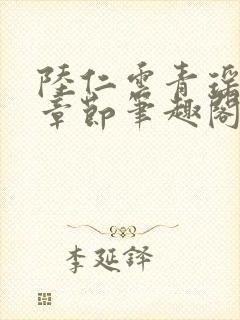 陸仁雲青瑶
章節筆趣閣
李延譯